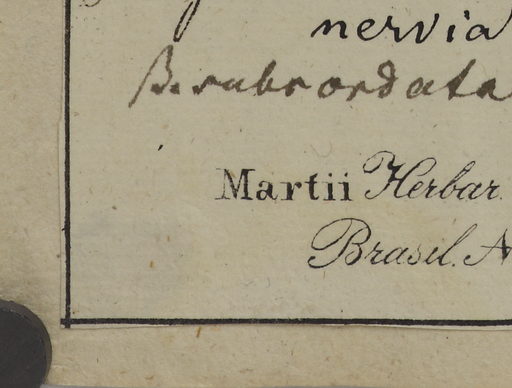 nervia
β. subcordata
Martii Herbar.
Brasil. N